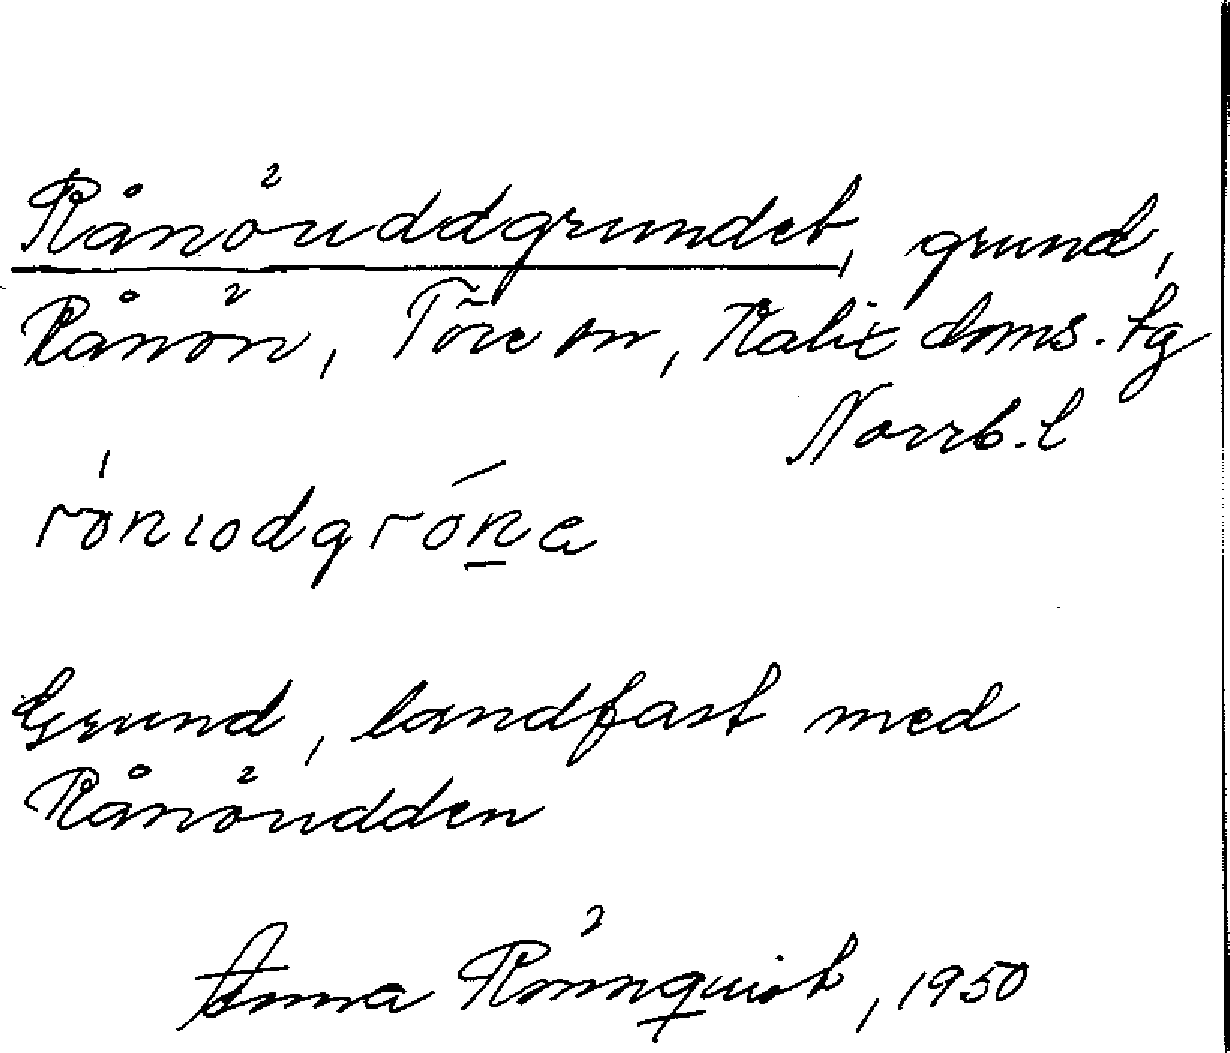 Rånöuddgrundet, grund,
Rånön, Töre sn, Kalix doms. tg
Norrb. l
Grund, landfast med
Rånöudden
Anna Rönnquist, 1950